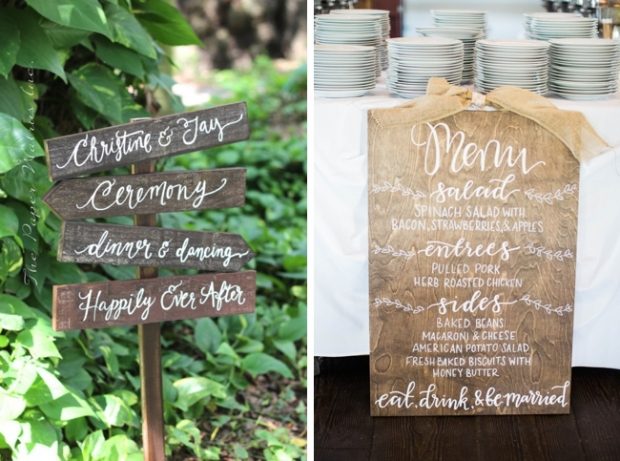 Christine & Jay
Ceremony
dinner & dancing
Happily Ever After
Menu
salad
SPINACH SALAD WITH
BACON, STRAWBERRIES, & APPLES
entrees
PULLED PORK
HERB ROASTED CHICKEN
sides
BAKED BEANS
MACARONI & CHEESE
AMERICAN POTATO SALAD
FRESH BAKED BISCUITS WITH
HONEY BUTTER
eat, drink, & be married